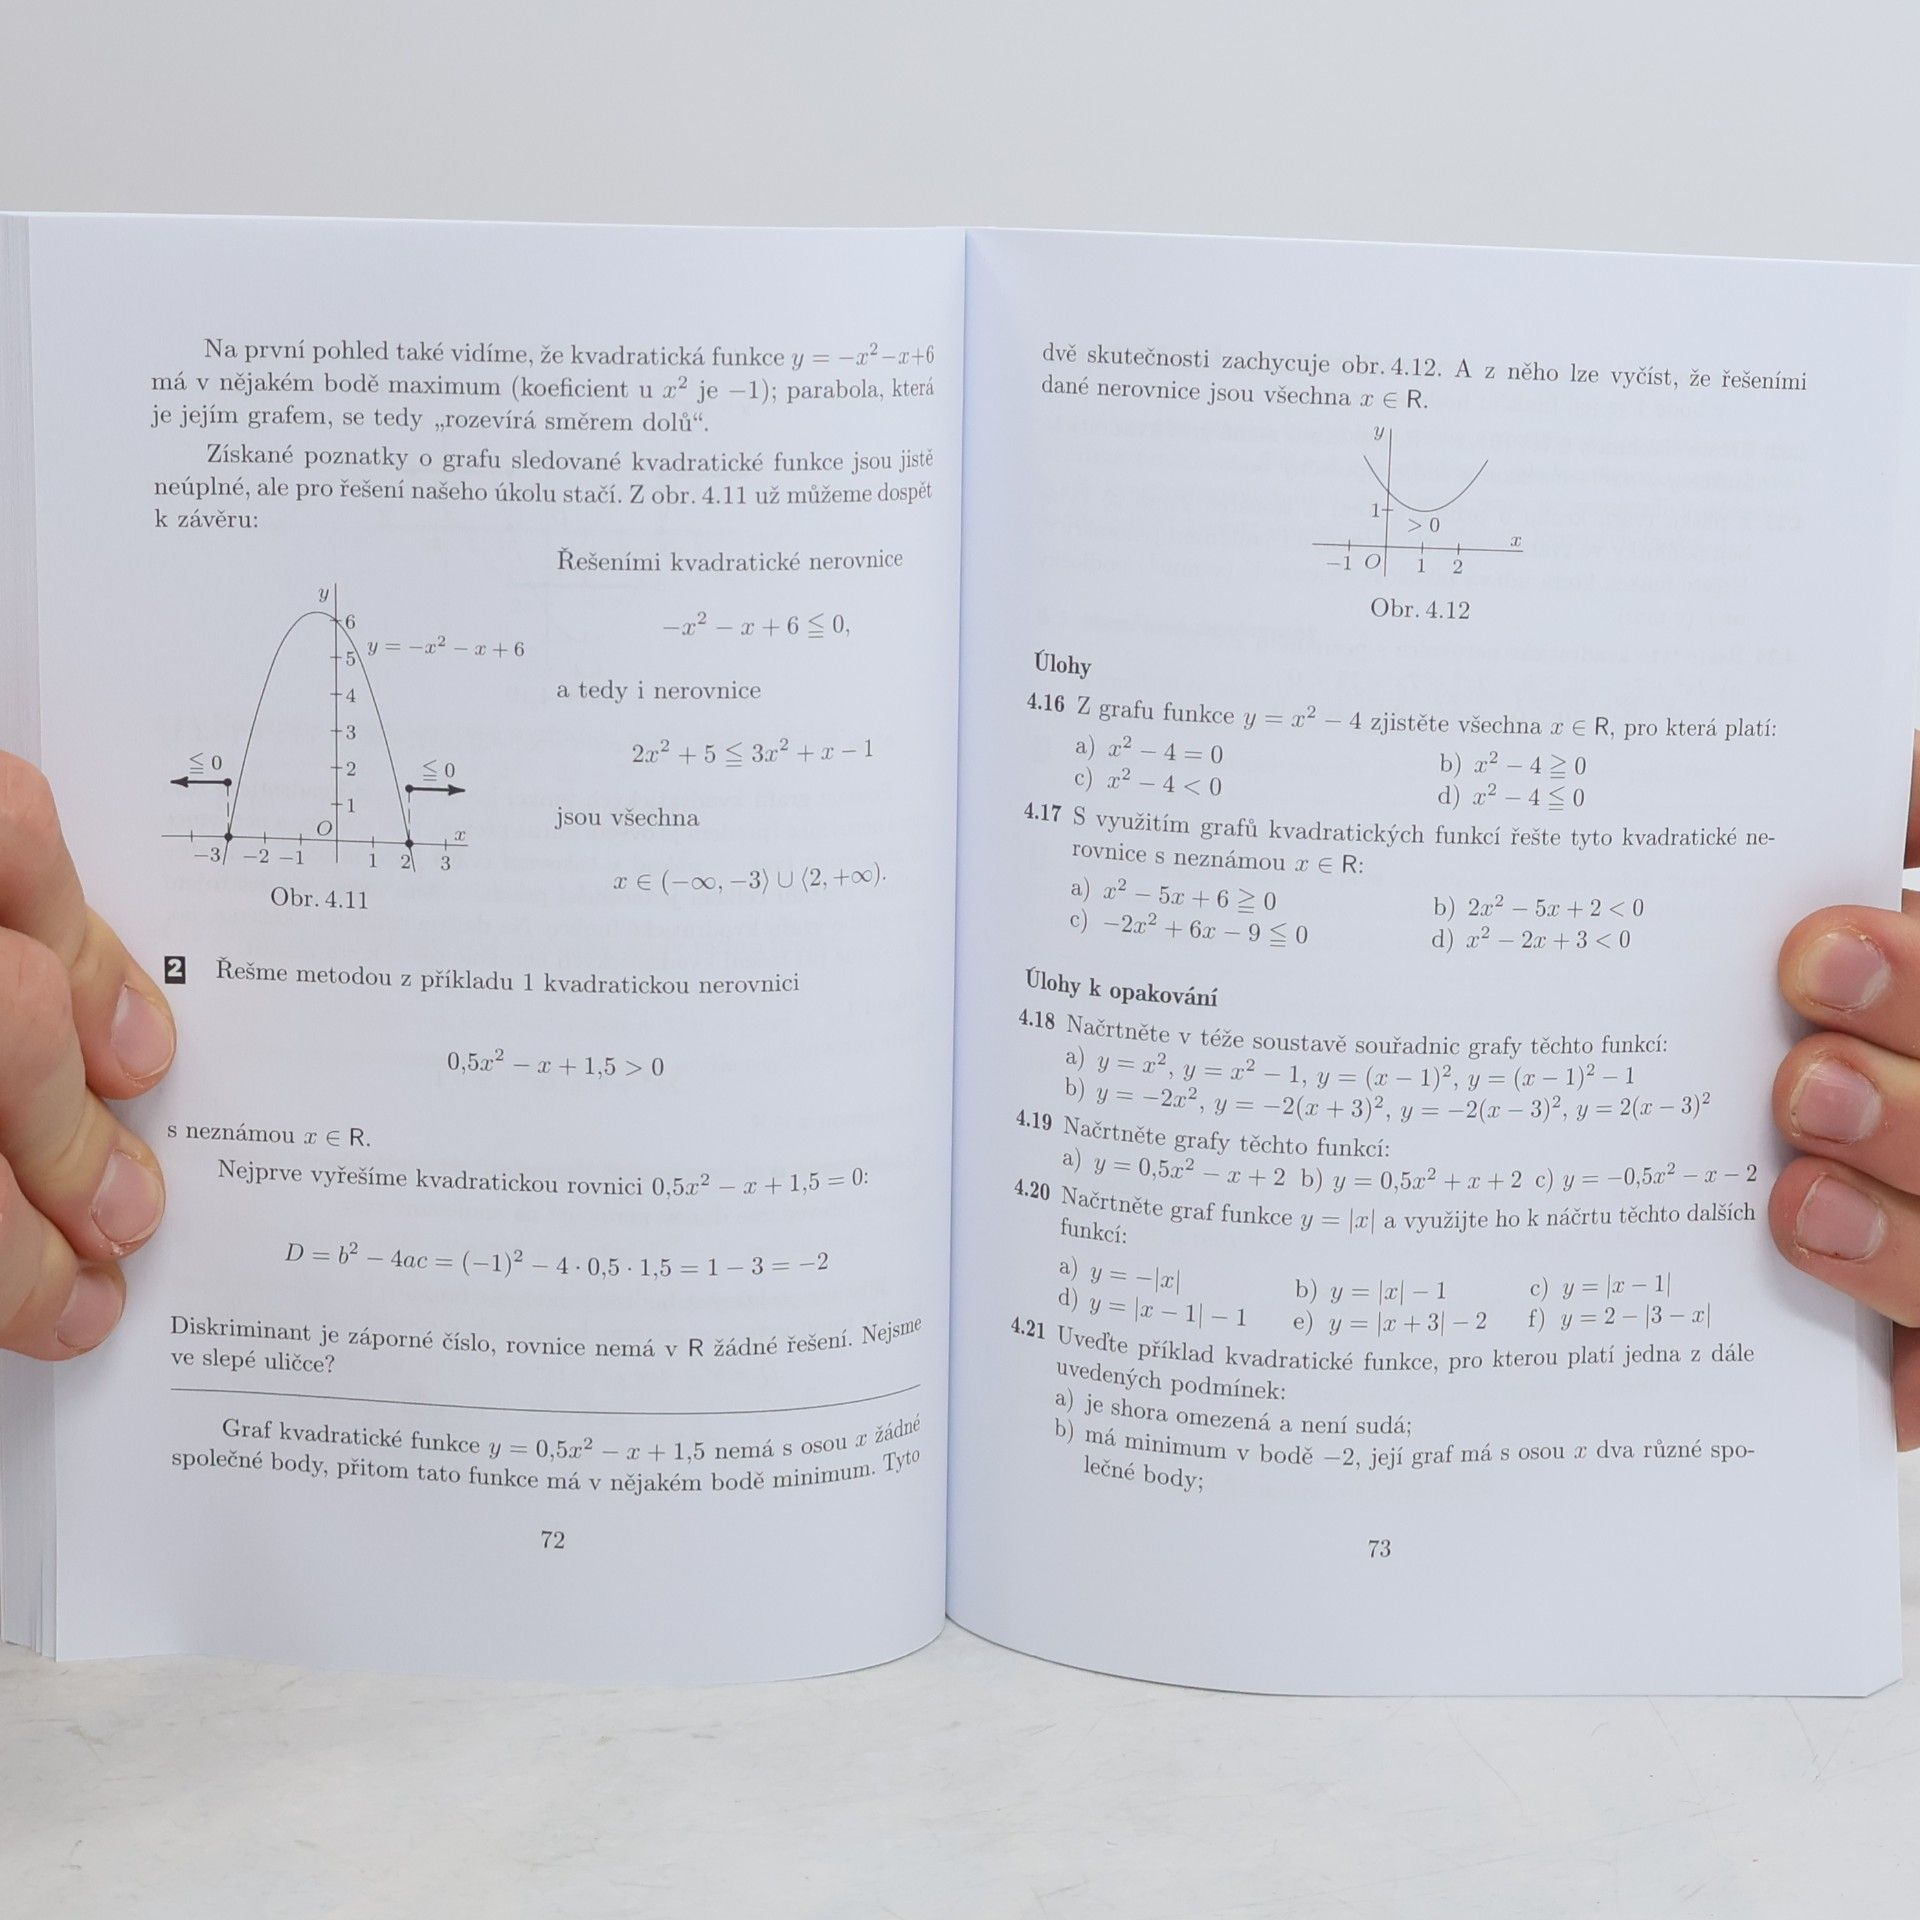 Na první pohled také vidíme, že kvadratická funkce y = −x²−x+6
má v nějakém bodě maximum (koeficient u x² je −1); parabola, která
je jejím grafem, se tedy „rozevírá směrem dolů“.
Získané poznatky o grafu sledované kvadratické funkce jsou jistě
neúplné, ale pro řešení našeho úkolu stačí. Z obr. 4.11 už můžeme dospět
k závěru:
y
6
5
4
3
2
1
y = −x² − x + 6
≦ 0
≦ 0
O
x
−3 −2 −1 1 2 3
Obr. 4.11
Řešeními kvadratické nerovnice
−x² − x + 6 ≦ 0,
a tedy i nerovnice
2x² + 5 ≦ 3x² + x − 1
jsou všechna
x ∈ (−∞, −3⟩ ∪ ⟨2, +∞).
2 Řešme metodou z příkladu 1 kvadratickou nerovnici
0,5x² − x + 1,5 > 0
s neznámou x ∈ R.
Nejprve vyřešíme kvadratickou rovnici 0,5x² − x + 1,5 = 0:
D = b² − 4ac = (−1)² − 4 · 0,5 · 1,5 = 1 − 3 = −2
Diskriminant je záporné číslo, rovnice nemá v R žádné řešení. Nejsme
ve slepé uličce?
Graf kvadratické funkce y = 0,5x² − x + 1,5 nemá s osou x žádné
společné body, přitom tato funkce má v nějakém bodě minimum. Tyto
72
dvě skutečnosti zachycuje obr. 4.12. A z něho lze vyčíst, že řešeními
dané nerovnice jsou všechna x ∈ R.
y
1
> 0
x
−1 O 1 2
Obr. 4.12
Úlohy
4.16 Z grafu funkce y = x² − 4 zjistěte všechna x ∈ R, pro která platí:
a) x² − 4 = 0 b) x² − 4 ≧ 0
c) x² − 4 < 0 d) x² − 4 ≦ 0
4.17 S využitím grafů kvadratických funkcí řešte tyto kvadratické ne-
rovnice s neznámou x ∈ R:
a) x² − 5x + 6 ≧ 0 b) 2x² − 5x + 2 < 0
c) −2x² + 6x − 9 ≦ 0 d) x² − 2x + 3 < 0
Úlohy k opakování
4.18 Načrtněte v téže soustavě souřadnic grafy těchto funkcí:
a) y = x², y = x² − 1, y = (x − 1)², y = (x − 1)² − 1
b) y = −2x², y = −2(x + 3)², y = −2(x − 3)², y = 2(x − 3)²
4.19 Načrtněte grafy těchto funkcí:
a) y = 0,5x² − x + 2 b) y = 0,5x² + x + 2 c) y = −0,5x² − x − 2
4.20 Načrtněte graf funkce y = |x| a využijte ho k náčrtu těchto dalších
funkcí:
a) y = −|x| b) y = |x| − 1 c) y = |x − 1|
d) y = |x − 1| − 1 e) y = |x + 3| − 2 f) y = 2 − |3 − x|
4.21 Uveďte příklad kvadratické funkce, pro kterou platí jedna z dále
uvedených podmínek:
a) je shora omezená a není sudá;
b) má minimum v bodě −2, její graf má s osou x dva různé spo-
lečné body;
73